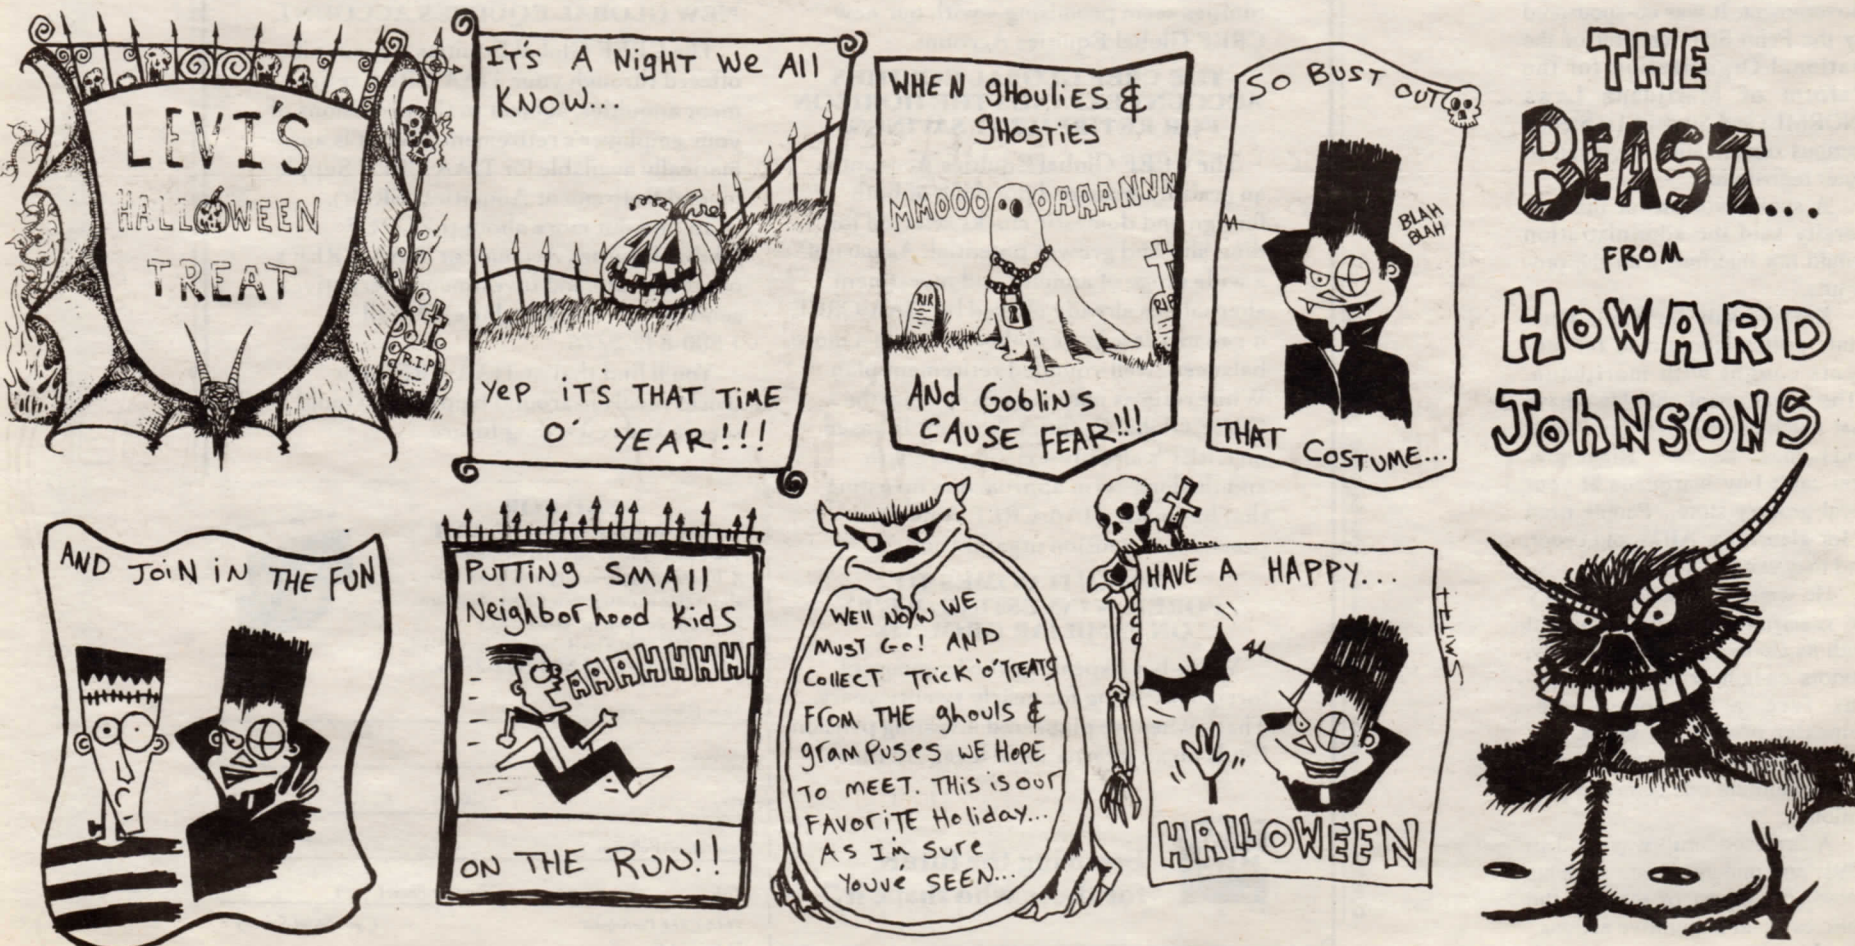 LEVI'S
HALLOWEEN
TREAT
R.I.P
IT'S A NIGHT WE All
KNOW...
YEP ITS THAT TIME
O' YEAR!!!
WHEN GHOULIES &
GHOSTIES
MMOOO OOHAAANNNN
RIP
RIP
ANd GOBLINS
CAUSE FEAR!!!
SO BUST OUT
BLAH
BLAH
THAT COSTUME...
THE
BEAST...
FROM
HOWARD
JOHNSONS
AND JOIN IN THE FUN
PUTTING SMAll
Neighborhood Kids
AAAHHHHH
ON THE RUN!!
WELL NOW WE
MUST GO! AND
COLLECT TRICK 'O' TREATS
FROM THE ghouls &
gramPuses WE HOPE
TO MEET. THIS is OUr
FAVORITE Holiday...
AS I'm Sure
YOUVE' SEEN...
HAVE A HAPPY...
HALLOWEEN